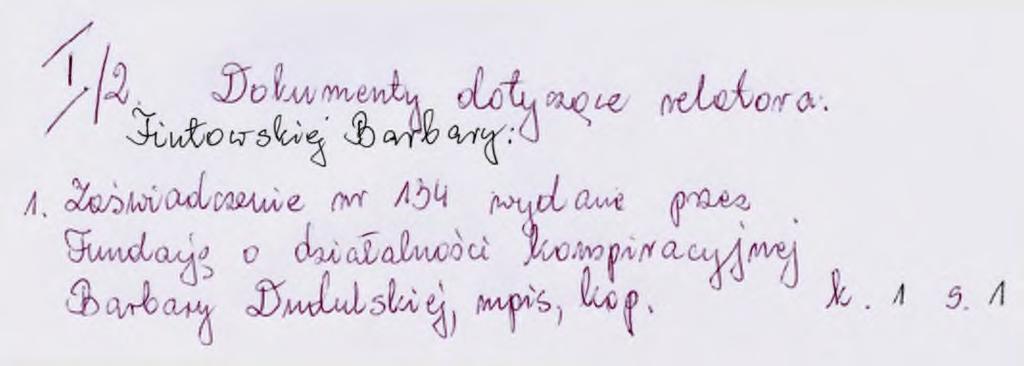 I/2. Dokumenty dotyczące relatora:
Fiutowskiej Barbary:
1. Zaświadczenie nr 134 wydane przez
Fundację o działalności konspiracyjnej
Barbary Dudulskiej, mpis, kop. k. 1 s. 1